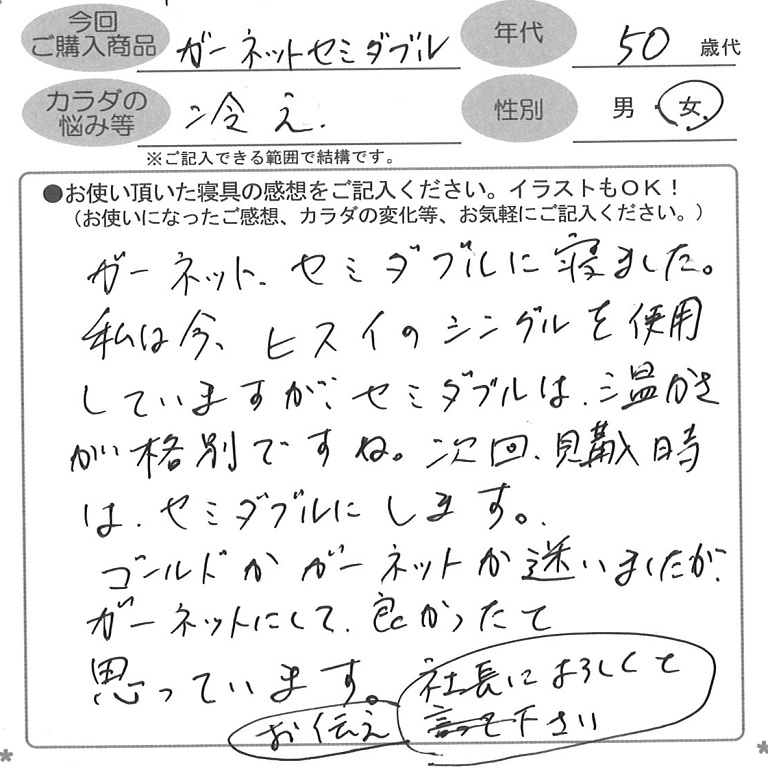 今回
ご購入商品 ガーネットセミダブル 年代 50 歳代
カラダの
悩み等 冷え. 性別 男・女
※ご記入できる範囲で結構です。
●お使い頂いた寝具の感想をご記入ください。イラストもOK！
（お使いになったご感想、カラダの変化等、お気軽にご記入ください。）
ガーネット、セミダブルに寝ました。
私は今、ヒスイのシングルを使用
していますが、セミダブルは、温かさ
が格別ですね。次回、購入時
は、セミダブルにします。
ゴールドかガーネットか迷いましたが、
ガーネットにして、良かったて
思っています。
社長によろしくと
お伝え 言って下さい